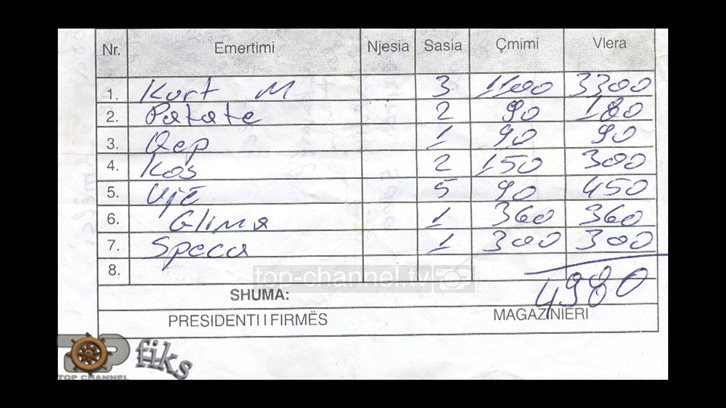 Nr. Emertimi Njesia Sasia Çmimi Vlera
1. Kurt M 3 1100 3300
2. Patate 2 90 180
3. Qep 1 90 90
4. Kos 2 150 300
5. Ujë 5 90 450
6. Glima 1 360 360
7. Speca 1 300 300
8.
top-channel.tv
SHUMA: 4980
PRESIDENTI I FIRMËS MAGAZINIERI
fiks
TOP CHANNEL